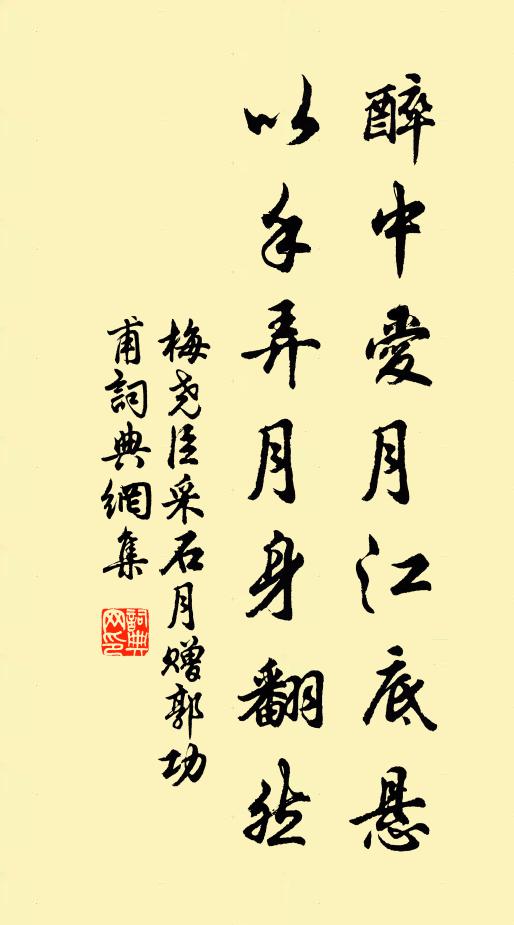 醉中愛月江底悬
以手弄月身翻然
梅尧臣采石月赠郭功
甫詞典網集
詞典
网印